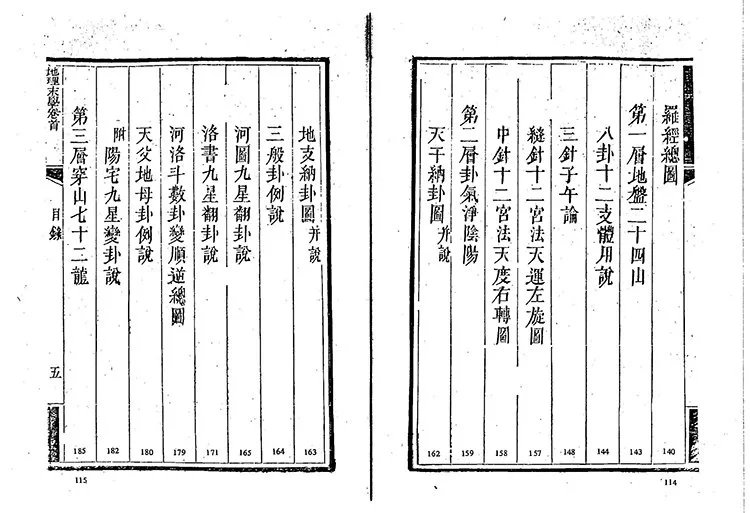 羅經總圖 140
第一層地盤二十四山 143
八卦十二支體用說 144
三針子午論 148
縫針十二宮法天運左旋圖 157
中針十二宮法天度右轉圖 158
第二層卦氣淨陰陽 159
天干納卦圖并說 162
114
地支納卦圖并說 163
三般卦例說 164
河圖九星翻卦說 165
洛書九星翻卦說 171
河洛斗數卦變順逆總圖 179
天父地母卦例說 180
附陽宅九星變卦說 182
第三層穿山七十二龍 185
地理末學卷首 目錄 五
115